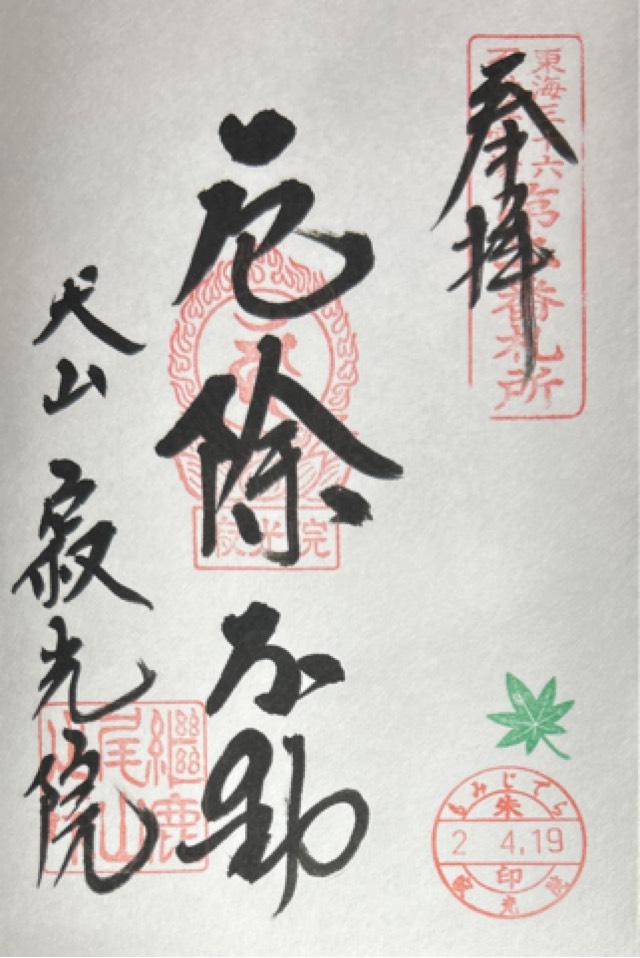 奉拝
東海三十六
不動尊霊場
第二番札所
厄除不動
寂光院
犬山 寂光院
継鹿
尾山
もみじでら
朱
2 4.19
印
寂光院